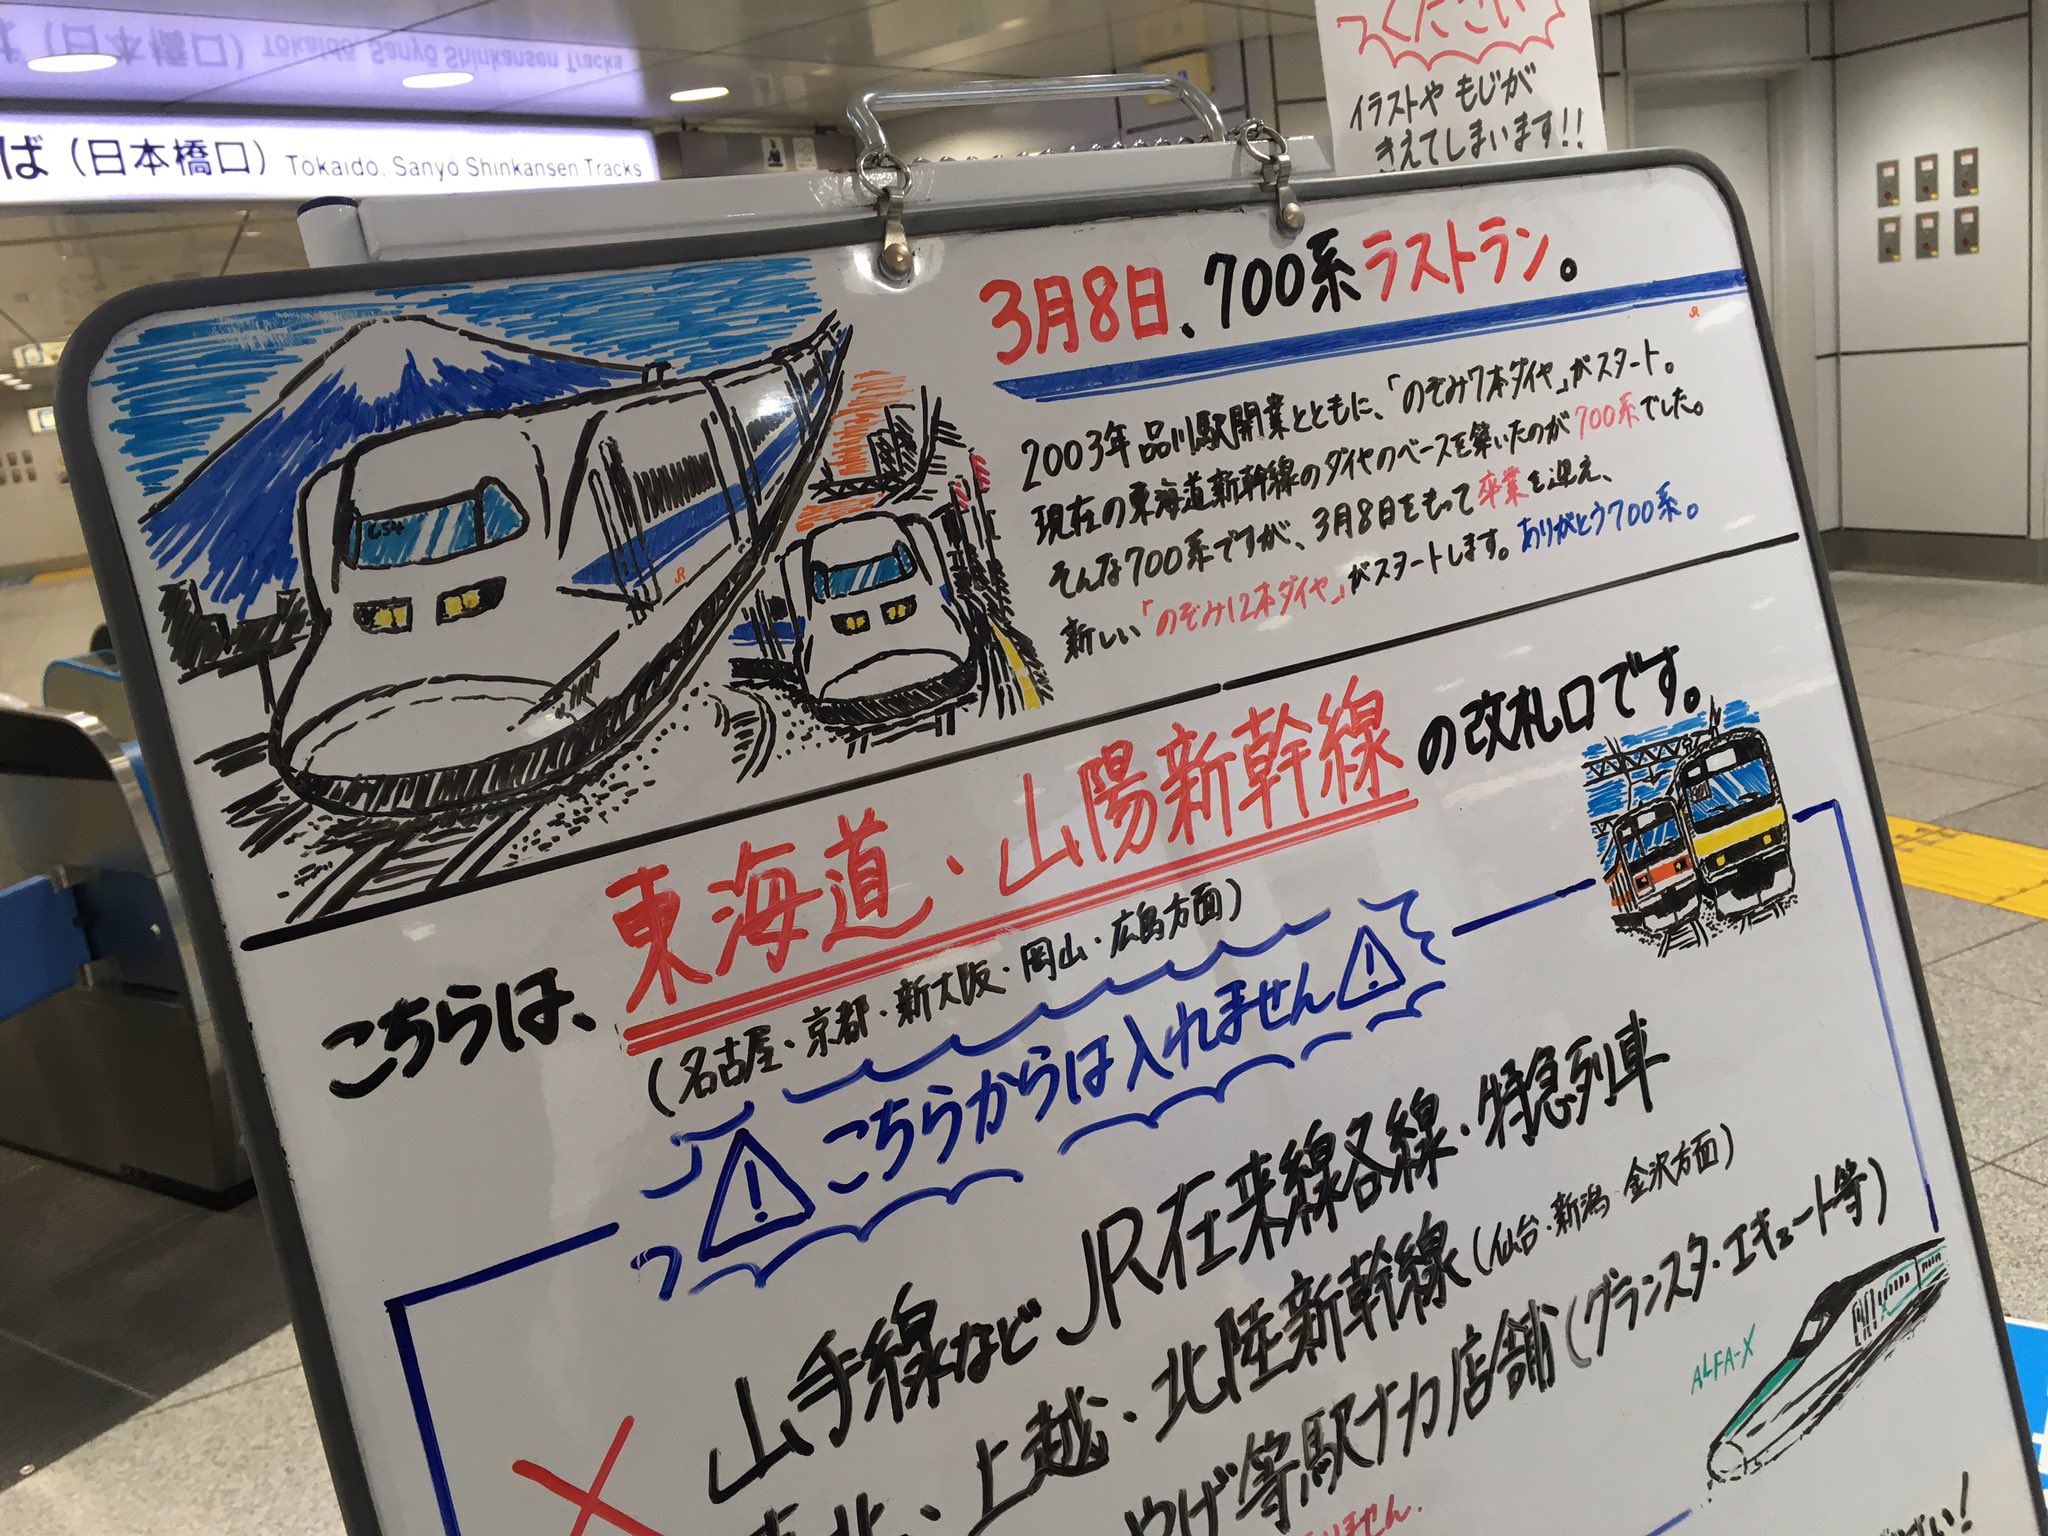 ば（日本橋口） Tokaido, Sanyo Shinkansen Tracks
ください
イラストや もじが
きえてしまいます!!
3月8日、700系ラストラン。
JR
2003年 品川駅開業とともに、「のぞみ7本ダイヤ」がスタート。
現在の東海道新幹線のダイヤのベースを築いたのが700系でした。
そんな700系ですが、3月8日をもって卒業を迎え、
新しい「のぞみ12本ダイヤ」がスタートします。ありがとう700系。
C54
JR
こちらは、東海道・山陽新幹線の改札口です。
(名古屋・京都・新大阪・岡山・広島方面)
こちらからは入れません
山手線など JR在来線各線・特急列車
東北、上越・北陸新幹線(仙台・新潟・金沢方面)
やげ等駅ナカ店舗(グランスタ・エキュート等)
ALFA-X
ません.
さい!